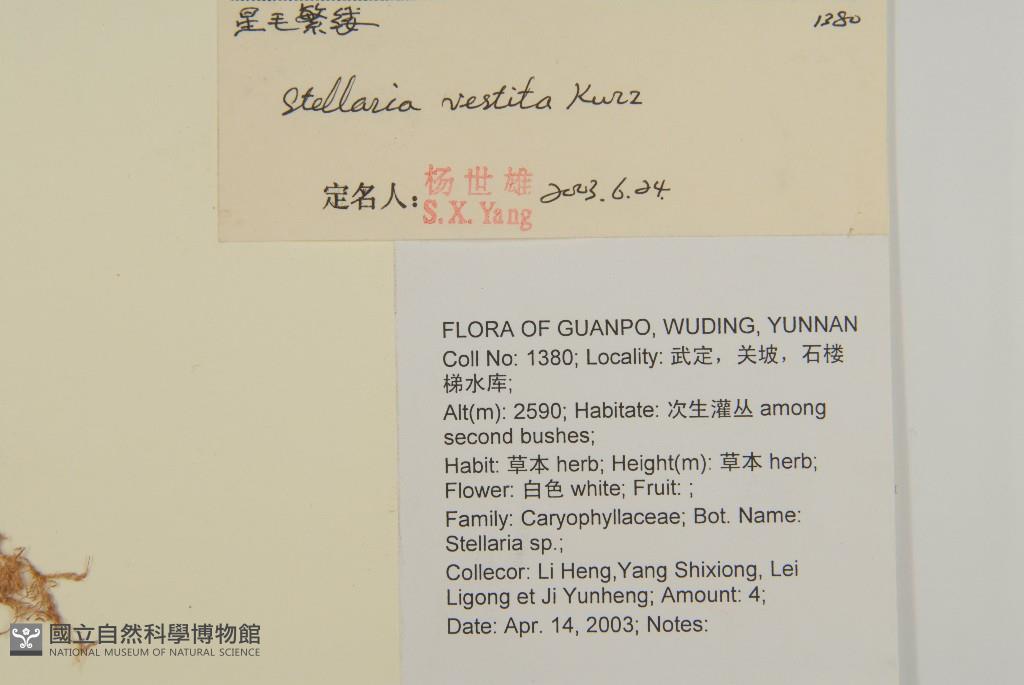 星毛繁缕 1380
Stellaria vestita Kurz
定名人: 杨世雄 2003.6.24.
S.X.Yang
FLORA OF GUANPO, WUDING, YUNNAN
Coll No: 1380; Locality: 武定，关坡，石楼
梯水库;
Alt(m): 2590; Habitate: 次生灌丛 among
second bushes;
Habit: 草本 herb; Height(m): 草本 herb;
Flower: 白色 white; Fruit: ;
Family: Caryophyllaceae; Bot. Name:
Stellaria sp.;
Collecor: Li Heng,Yang Shixiong, Lei
Ligong et Ji Yunheng; Amount: 4;
Date: Apr. 14, 2003; Notes:
國立自然科學博物館
NATIONAL MUSEUM OF NATURAL SCIENCE